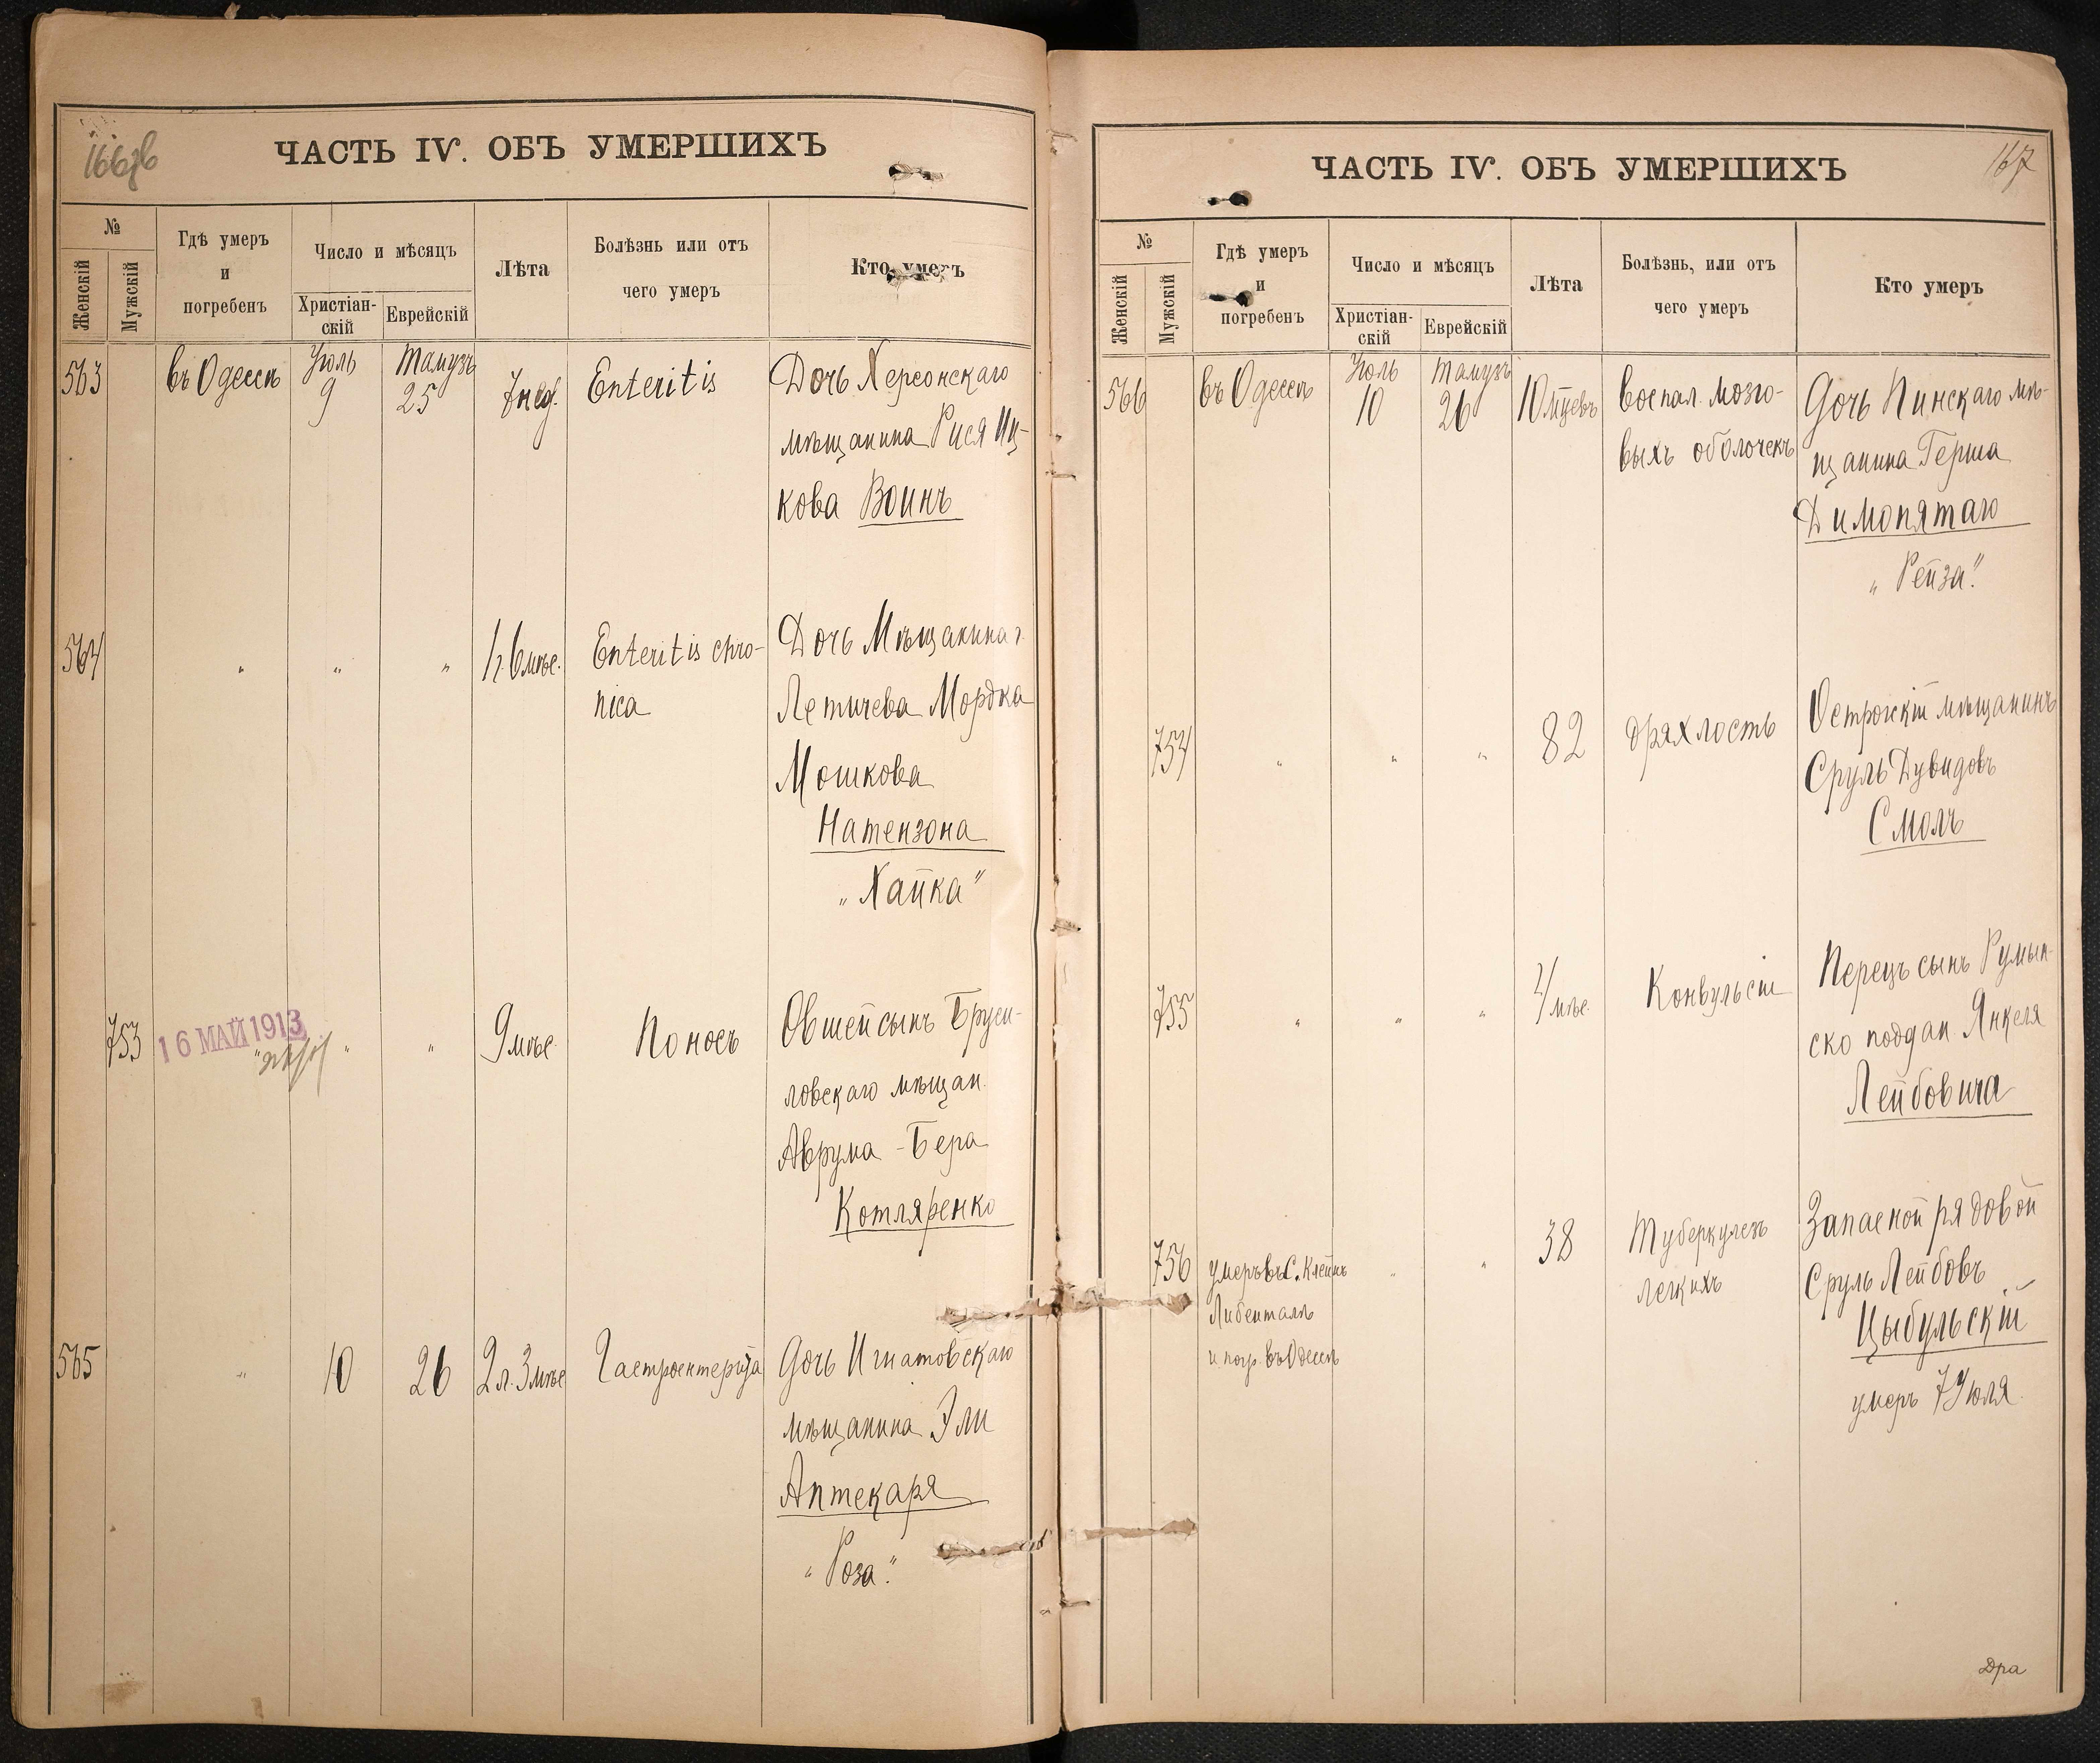 166об
ЧАСТЬ IV. ОБЪ УМЕРШИХЪ
№
Женскій
Мужскій
Гдѣ умеръ
и
погребенъ
Число и мѣсяцъ
Христіан-
скій
Еврейскій
Лѣта
Болѣзнь или отъ
чего умеръ
Кто умеръ
563 въ Одессѣ Іюль 9 Тамузъ 25 7 нед. Enteritis Дочь Херсонскаго
мѣщанина Рися Иц-
кова Воинъ
564 " " " 1 г. 6 мѣс. Enteritis chro- Дочь Мѣщанина г.
nica Летичева Мордка
Мошкова
Натензона
„Хайка"
753 16 МАЙ 1913 " " " 9 мѣс. Поносъ Овшей сынъ Бруси-
ловскаго мѣщан.
Аврума-Бера
Котляренко
565 " 10 26 2 л. 3 мѣс. Гастроентерита Дочь Игнатовскаго
мѣщанина Эли
Аптекаря
„Роза."
167
ЧАСТЬ IV. ОБЪ УМЕРШИХЪ
№
Женскій
Мужскій
Гдѣ умеръ
и
погребенъ
Число и мѣсяцъ
Христіан-
скій
Еврейскій
Лѣта
Болѣзнь, или отъ
чего умеръ
Кто умеръ
566 въ Одессѣ Іюль 10 Тамузъ 26 10 мцевъ воспал. мозго- Дочь Пинскаго мѣ-
выхъ оболочекъ щанина Герша
Димопятаго
„Рейза."
754 " " " 82 дряхлость Острожкій мѣщанинъ
Сруль Дувидовъ
Смолъ
755 " " " 4 мѣс. Конвульсіи Перецъ сынъ Румын-
ско поддан. Янкеля
Лейбовича
756 умеръ въ С. Клейнъ " " 38 Туберкулезъ Запасной рядовой
Либенталѣ легкихъ Сруль Лейбовъ
и погр. въ Одессѣ Цыбульскій
умеръ 7 Іюля.
Дра